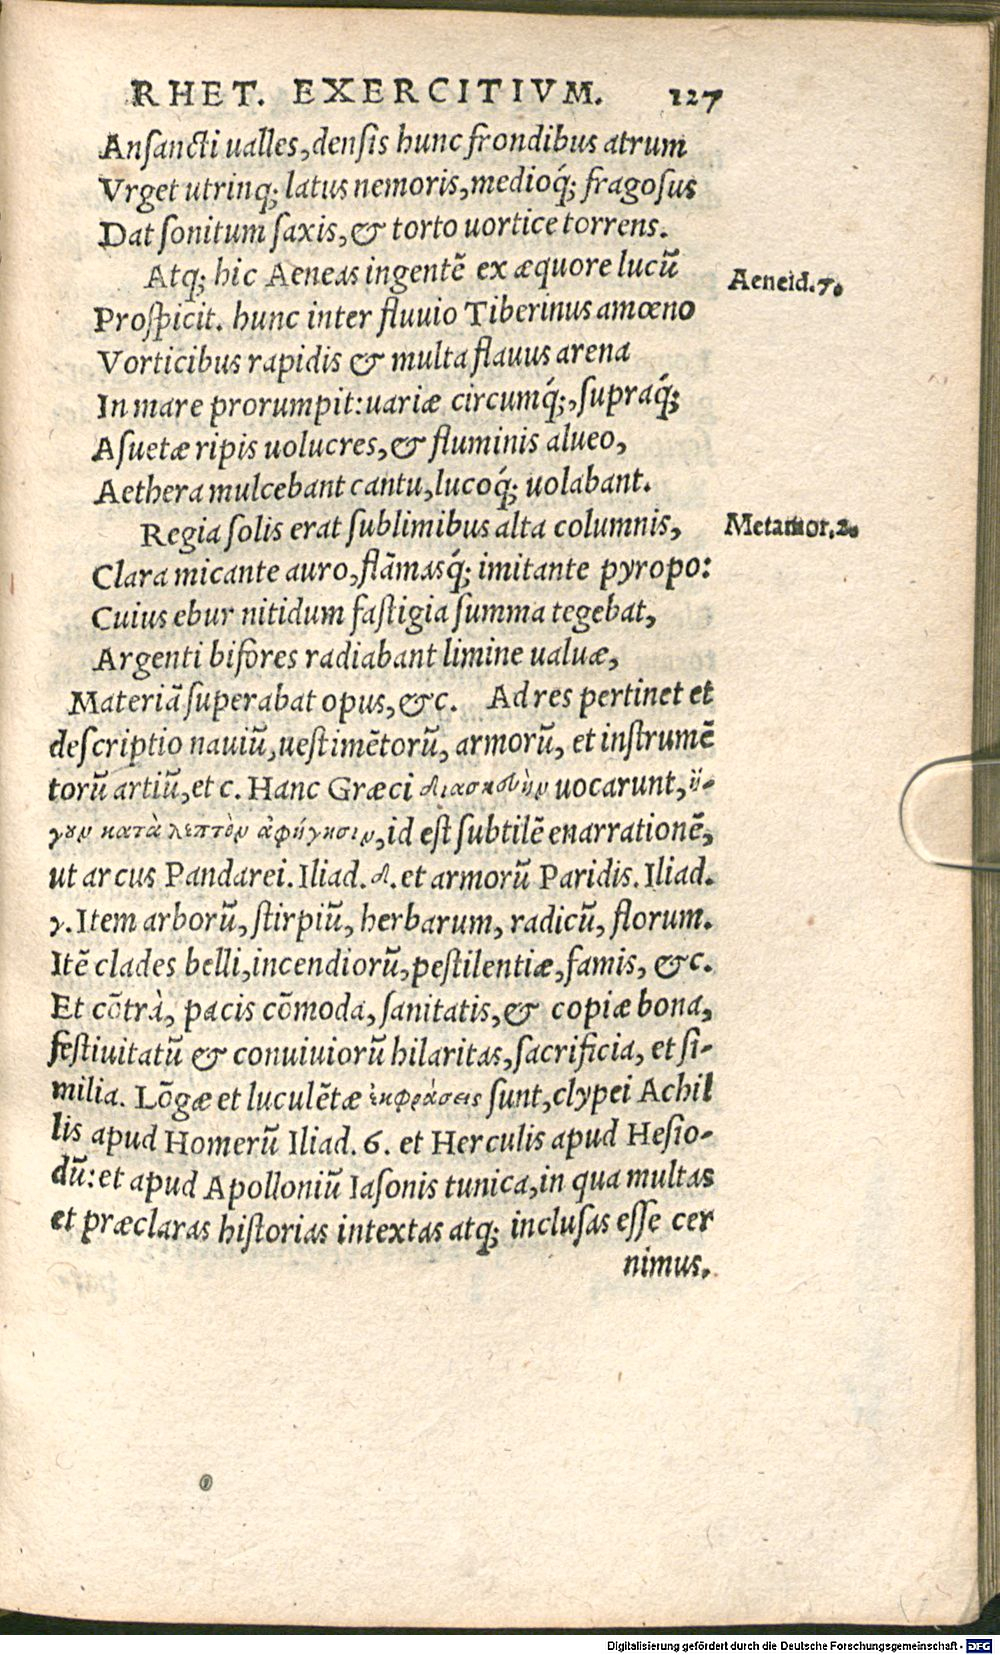 RHET. EXERCITIVM. 127
Anſancti ualles, denſis hunc frondibus atrum
Vrget utrinq; latus nemoris, medioq́; fragoſus
Dat ſonitum ſaxis, & torto uortice torrens.
Atq; hic Aeneas ingentē ex æquore lucū
Aeneid.7.
Proſpicit. hunc inter fluuio Tiberinus amœno
Vorticibus rapidis & multa flauus arena
In mare prorumpit: uariæ circumq́;, ſupraq́;
Aſuetæ ripis uolucres, & fluminis alueo,
Aethera mulcebant cantu, lucoq́; uolabant.
Regia ſolis erat ſublimibus alta columnis,
Metamor.2.
Clara micante auro, flāmasq́; imitante pyropo:
Cuius ebur nitidum faſtigia ſumma tegebat,
Argenti bifores radiabant limine ualuæ,
Materiā ſuperabat opus, &c. Ad res pertinet et
deſcriptio nauiū, ueſtimētorū, armorū, et inſtrumē
torū artiū, et c. Hanc Græci διασκευὴν uocarunt, ἤ-
γουν κατὰ λεπτὸν ἀφήγησιν, id eſt ſubtilē enarrationē,
ut arcus Pandarei. Iliad. δ. et armorū Paridis. Iliad.
γ. Item arborū, ſtirpiū, herbarum, radicū, florum.
Itē clades belli, incendiorū, peſtilentiæ, famis, &c.
Et cōtrà, pacis cōmoda, ſanitatis, & copiæ bona,
feſtiuitatū & conuiuiorū hilaritas, ſacrificia, et ſi-
milia. Lōgæ et luculētæ ἐκφράσεις ſunt, clypei Achil
lis apud Homerū Iliad. 6. et Herculis apud Heſio-
dū: et apud Apolloniū Iaſonis tunica, in qua multas
et præclaras hiſtorias intextas atq; incluſas eſſe cer
nimus.
Digitalisierung gefördert durch die Deutsche Forschungsgemeinschaft - DFG